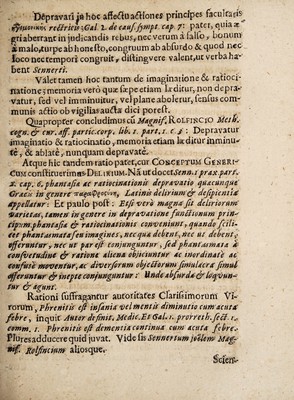 Depravari in hoc affectu actiones principes facultatis
rectricis; Gal. 2. de caus. sympt. cap. 7. patet, quia æ-
gri aberrant in judicandis rebus, nec verum à falso, bonum
à malo, turpe ab honesto, congruum ab absurdo & quod nec
loco nec tempori congruit, distingvere valent, ut verba ha-
bent Sennerti.
Valet tamen hoc tantum de imaginatione & ratioci-
natione; memoria verò quæ sæpe etiam læditur, non depra-
vatur, sed vel imminuitur, vel plane aboletur, sensus com-
munis actio ob vigilias aucta dici potest.
Quapropter concludimus cū Magnif. ROLFINCIO Meth.
cogn. & cur. aff. partic. corp. lib. 1. part. 1. c. 6: Depravatur
imaginatio & ratiocinatio, memoria etiam læditur imminu-
tè, & ablatè, nunquam depravatè.
Atque hîc tandem ratio patet, cur CONCEPTUM GENERI-
CUM constituerimus DELIRIUM. Nā ut docet Senn. 1 prax. part.
2. cap. 6. phantasiæ ac ratiocinationis depravatio quæcunque
Græcis in genere παραφροσύνη, Latinis delirium & desipientia
appellatur: Et paulo post: Etsi verò magna sit deliriorum
varietas, tamen in genere in depravatione functionum prin-
cipum: phantasiæ & ratiocinationis conveniunt, quando scili-
cet phantasmata seu imagines, nec qua debent, nec ut debent,
offeruntur, nec ut par est conjunguntur, sed phantasmata à
consvetudine & ratione aliena objiciuntur ac inordinatè ac
confusè moventur, ac diversorum objectorum simulacra simul
offeruntur & ineptè conjunguntur: Unde absurda & loqvun-
tur & agunt.
Rationi suffragantur autoritates Clarissimorum Vi-
rorum, Phrenitis est insania vel mentis diminutio cum acuta
febre, inquit Autor definit. Medic. Et Gal. 1. prorreth. sect. 1.
comm. 1. Phrenitis est dementia continua cum acuta febre.
Plures adducere quid juvat. Vide sis Sennertum ibidem Mag-
nif. Rolfincium aliosque.
Scien-